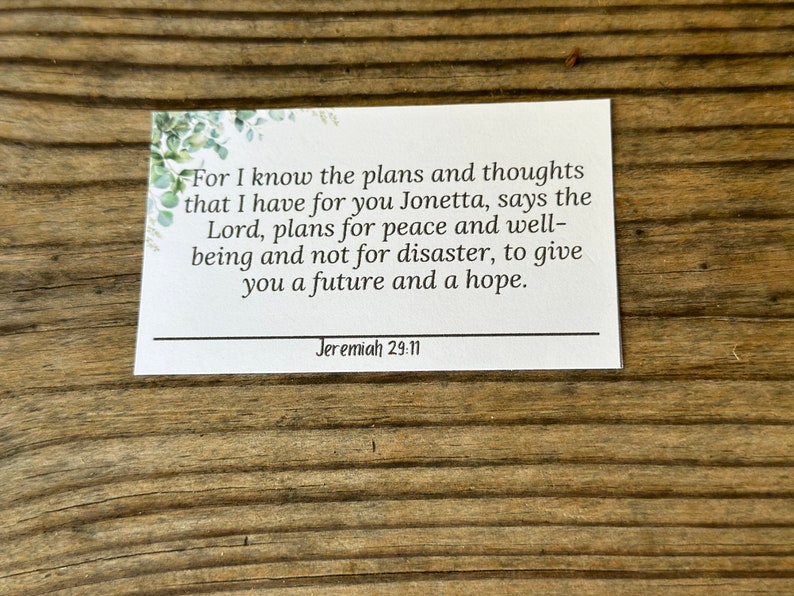 For I know the plans and thoughts
that I have for you Jonetta, says the
Lord, plans for peace and well-
being and not for disaster, to give
you a future and a hope.
Jeremiah 29:11